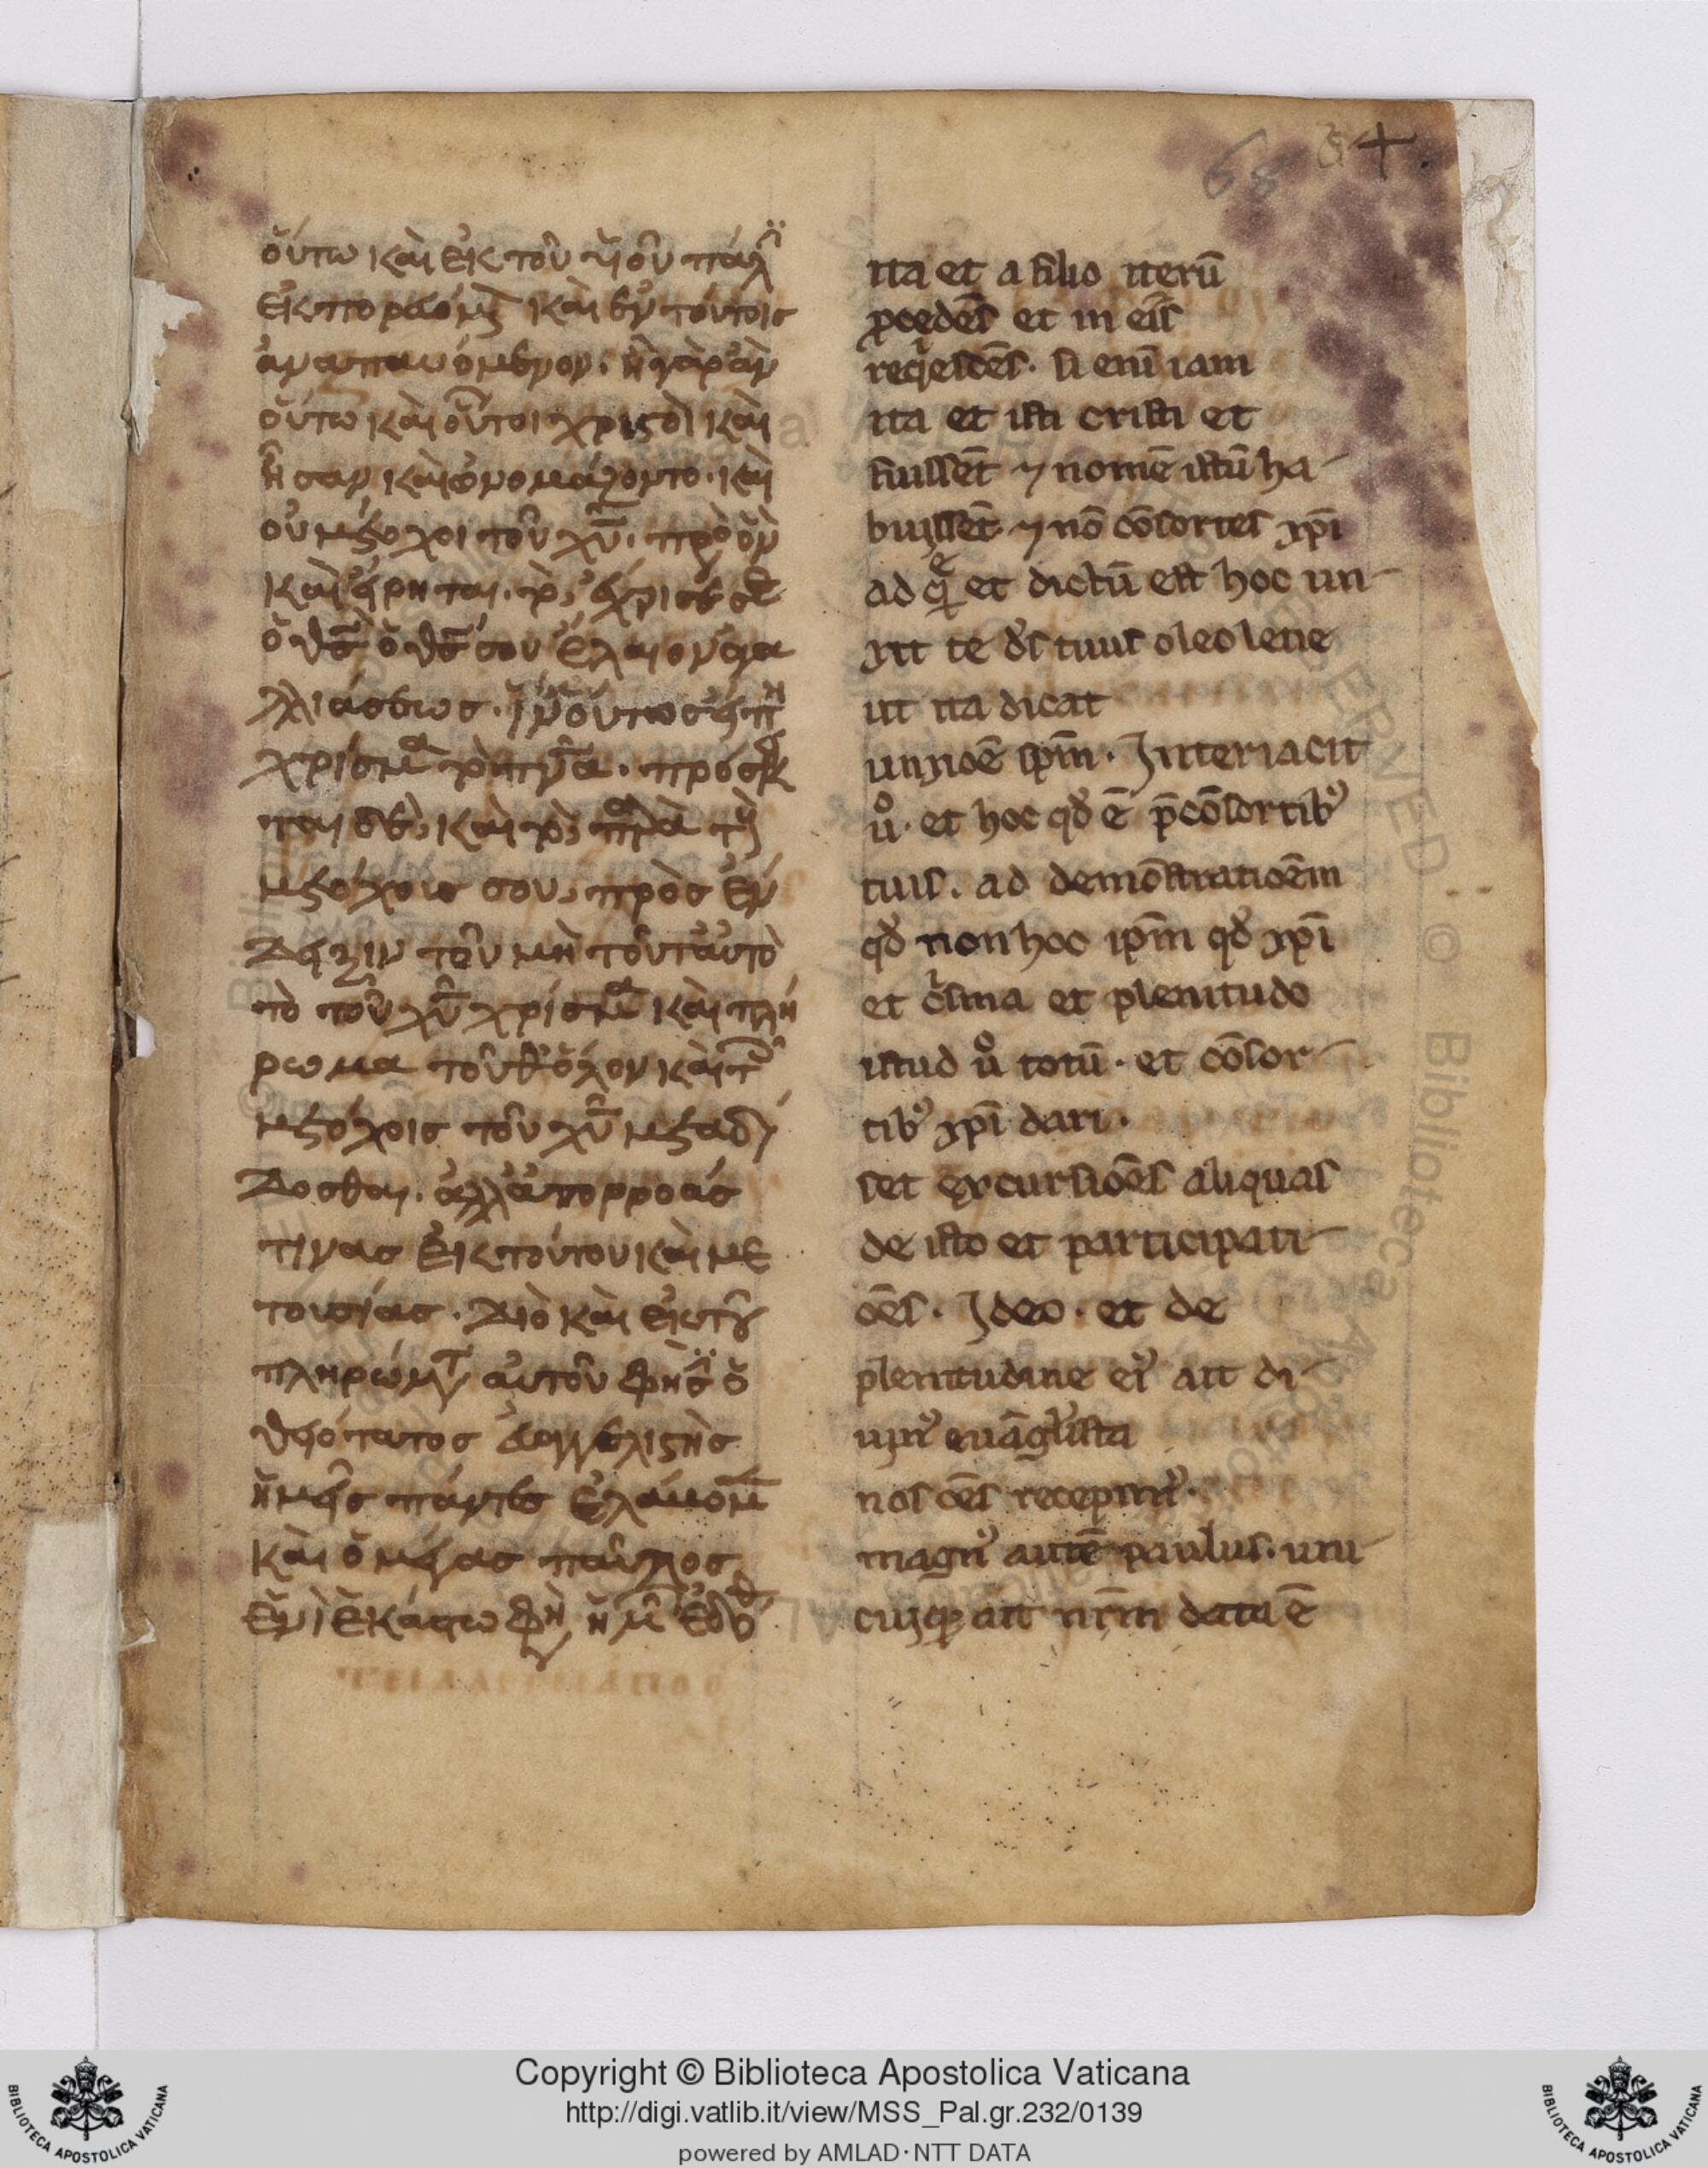 68
οὕτω καὶ ἐκ τοῦ υἱοῦ πάλ
ἐκπορευόμ καὶ ἐν τούτοις
ἀναπαυόμενον. εἰ γὰρ ἂν
οὕτω καὶ οὗτοι χριστοὶ καὶ
ἦσαν καὶ ὠνομάζοντο. καὶ
οὐ μέτοχοι τοῦ χῦ. πρὸ ὃν
καὶ εἴρηται. τὸ, ἔχρισέ σε
ὁ θς ὁ θς σου ἔλαιον ἀγα
λλιάσεως. ἵν οὕτως εἴπη
χρίσμα τὸ πνα. πρόσκ
ται δὲ, καὶ τὸ, παρὰ τοὺς
μετόχοις σου, πρὸς ἔν
δειξιν τοῦ μὴ τοῦτ αὐτὸ
τὸ τοῦ χῦ χρίσμα καὶ πλή
ρωμα τοῦθ ὅλον καὶ τ
μετόχοις τοῦ χῦ μεταδί
δοσθαι. ἀλλ ἀπορροάς
τινας ἐκ τούτου καὶ με
τουσίας. διὸ καὶ ἐκ τοῦ
πληρώμτ αὐτοῦ φησὶ ὁ
θειότατος εὐαγγελιστὴς
ἡμεῖς πάντες ἐλάβομ
καὶ ὁ μέγας παῦλος
ἑνὶ ἑκάστω φη ἡμ ἐδόθ
ita et a filio iterū
ꝓcedēs et in eis
reqͥescēs. si enī iam
ita et isti cristi et
fuissēt ⁊ nomē istū ha-
buissēt. ⁊ nō cōsortes xp̄i
ad q̄ et dictū est hoc un-
xit te ds̄ tuus oleo letie
ut ita dicat
unxioē ip̄m. Interiacit
uͦ. et hoc qd̓ ē p̄ cōsortib᷒
tuis. ad demōstratioēm
qd̓ non hoc ip̄m qd̓ xp̄i
et cͥsma et plenitudo
istud uͦ totū. et cōsor-
tib᷒ xp̄i dari.
set excursioēs aliquas
de isto et participati-
oēs. Ideo. et de
plenitudine ei᷒ ait di-
uin᷒ euāglista
nos oēs recepim᷒.
magn᷒ autē paulus. uni-
cuiqꝫ ait nr̄m data ē
Copyright © Biblioteca Apostolica Vaticana
http://digi.vatlib.it/view/MSS_Pal.gr.232/0139
powered by AMLAD·NTT DATA
BIBLIOTECA APOSTOLICA VATICANA
BIBLIOTECA APOSTOLICA VATICANA